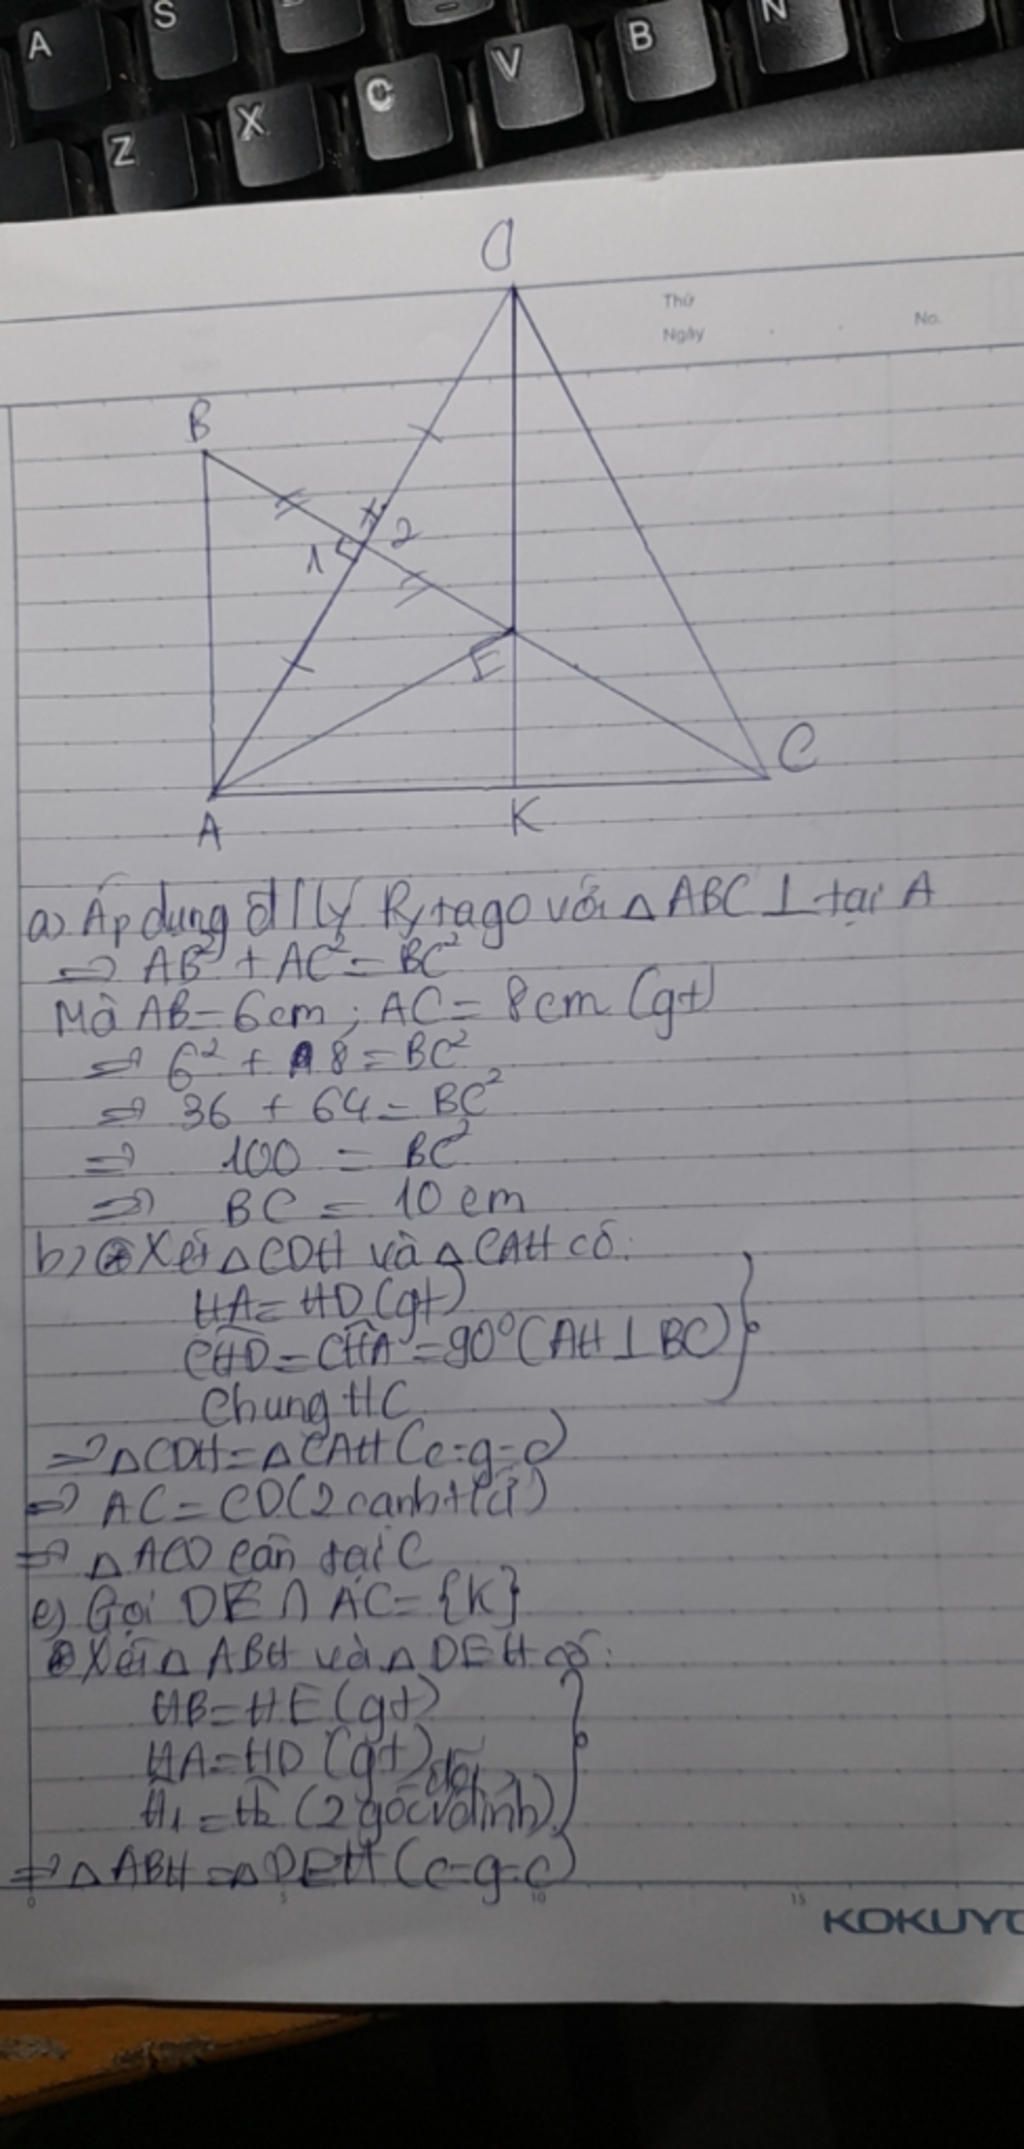 A
S
Z
X
C
V
B
N
D
Thứ
Ngày
No.
B
1
2
E
C
A
K
a) Áp dụng đ/lý Pytago với △ABC ⊥ tại A
=> AB² + AC² = BC²
Mà AB = 6cm; AC = 8cm (gt)
=> 6² + 8 = BC²
=> 36 + 64 = BC²
=> 100 = BC²
=> BC = 10 cm
b) Xét △CDH và △CAH có:
HA = HD (gt)
CHD = CHA = 90° (AH ⊥ BC)
Chung HC
=> △CDH = △CAH (c-g-c)
=> AC = CD (2 cạnh t/ư)
=> △ACD cân tại C
c) Gọi DE ∩ AC = {K}
Xét △ABH và △DEH có:
HB = HE (gt)
HA = HD (gt)
H1 = H2 (2 góc đối đỉnh)
=> △ABH = △DEH (c-g-c)
0 5 10 15
KOKUYO